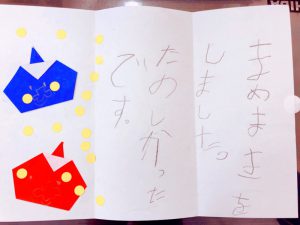 まめまきを
しました。
たのしかった
です。